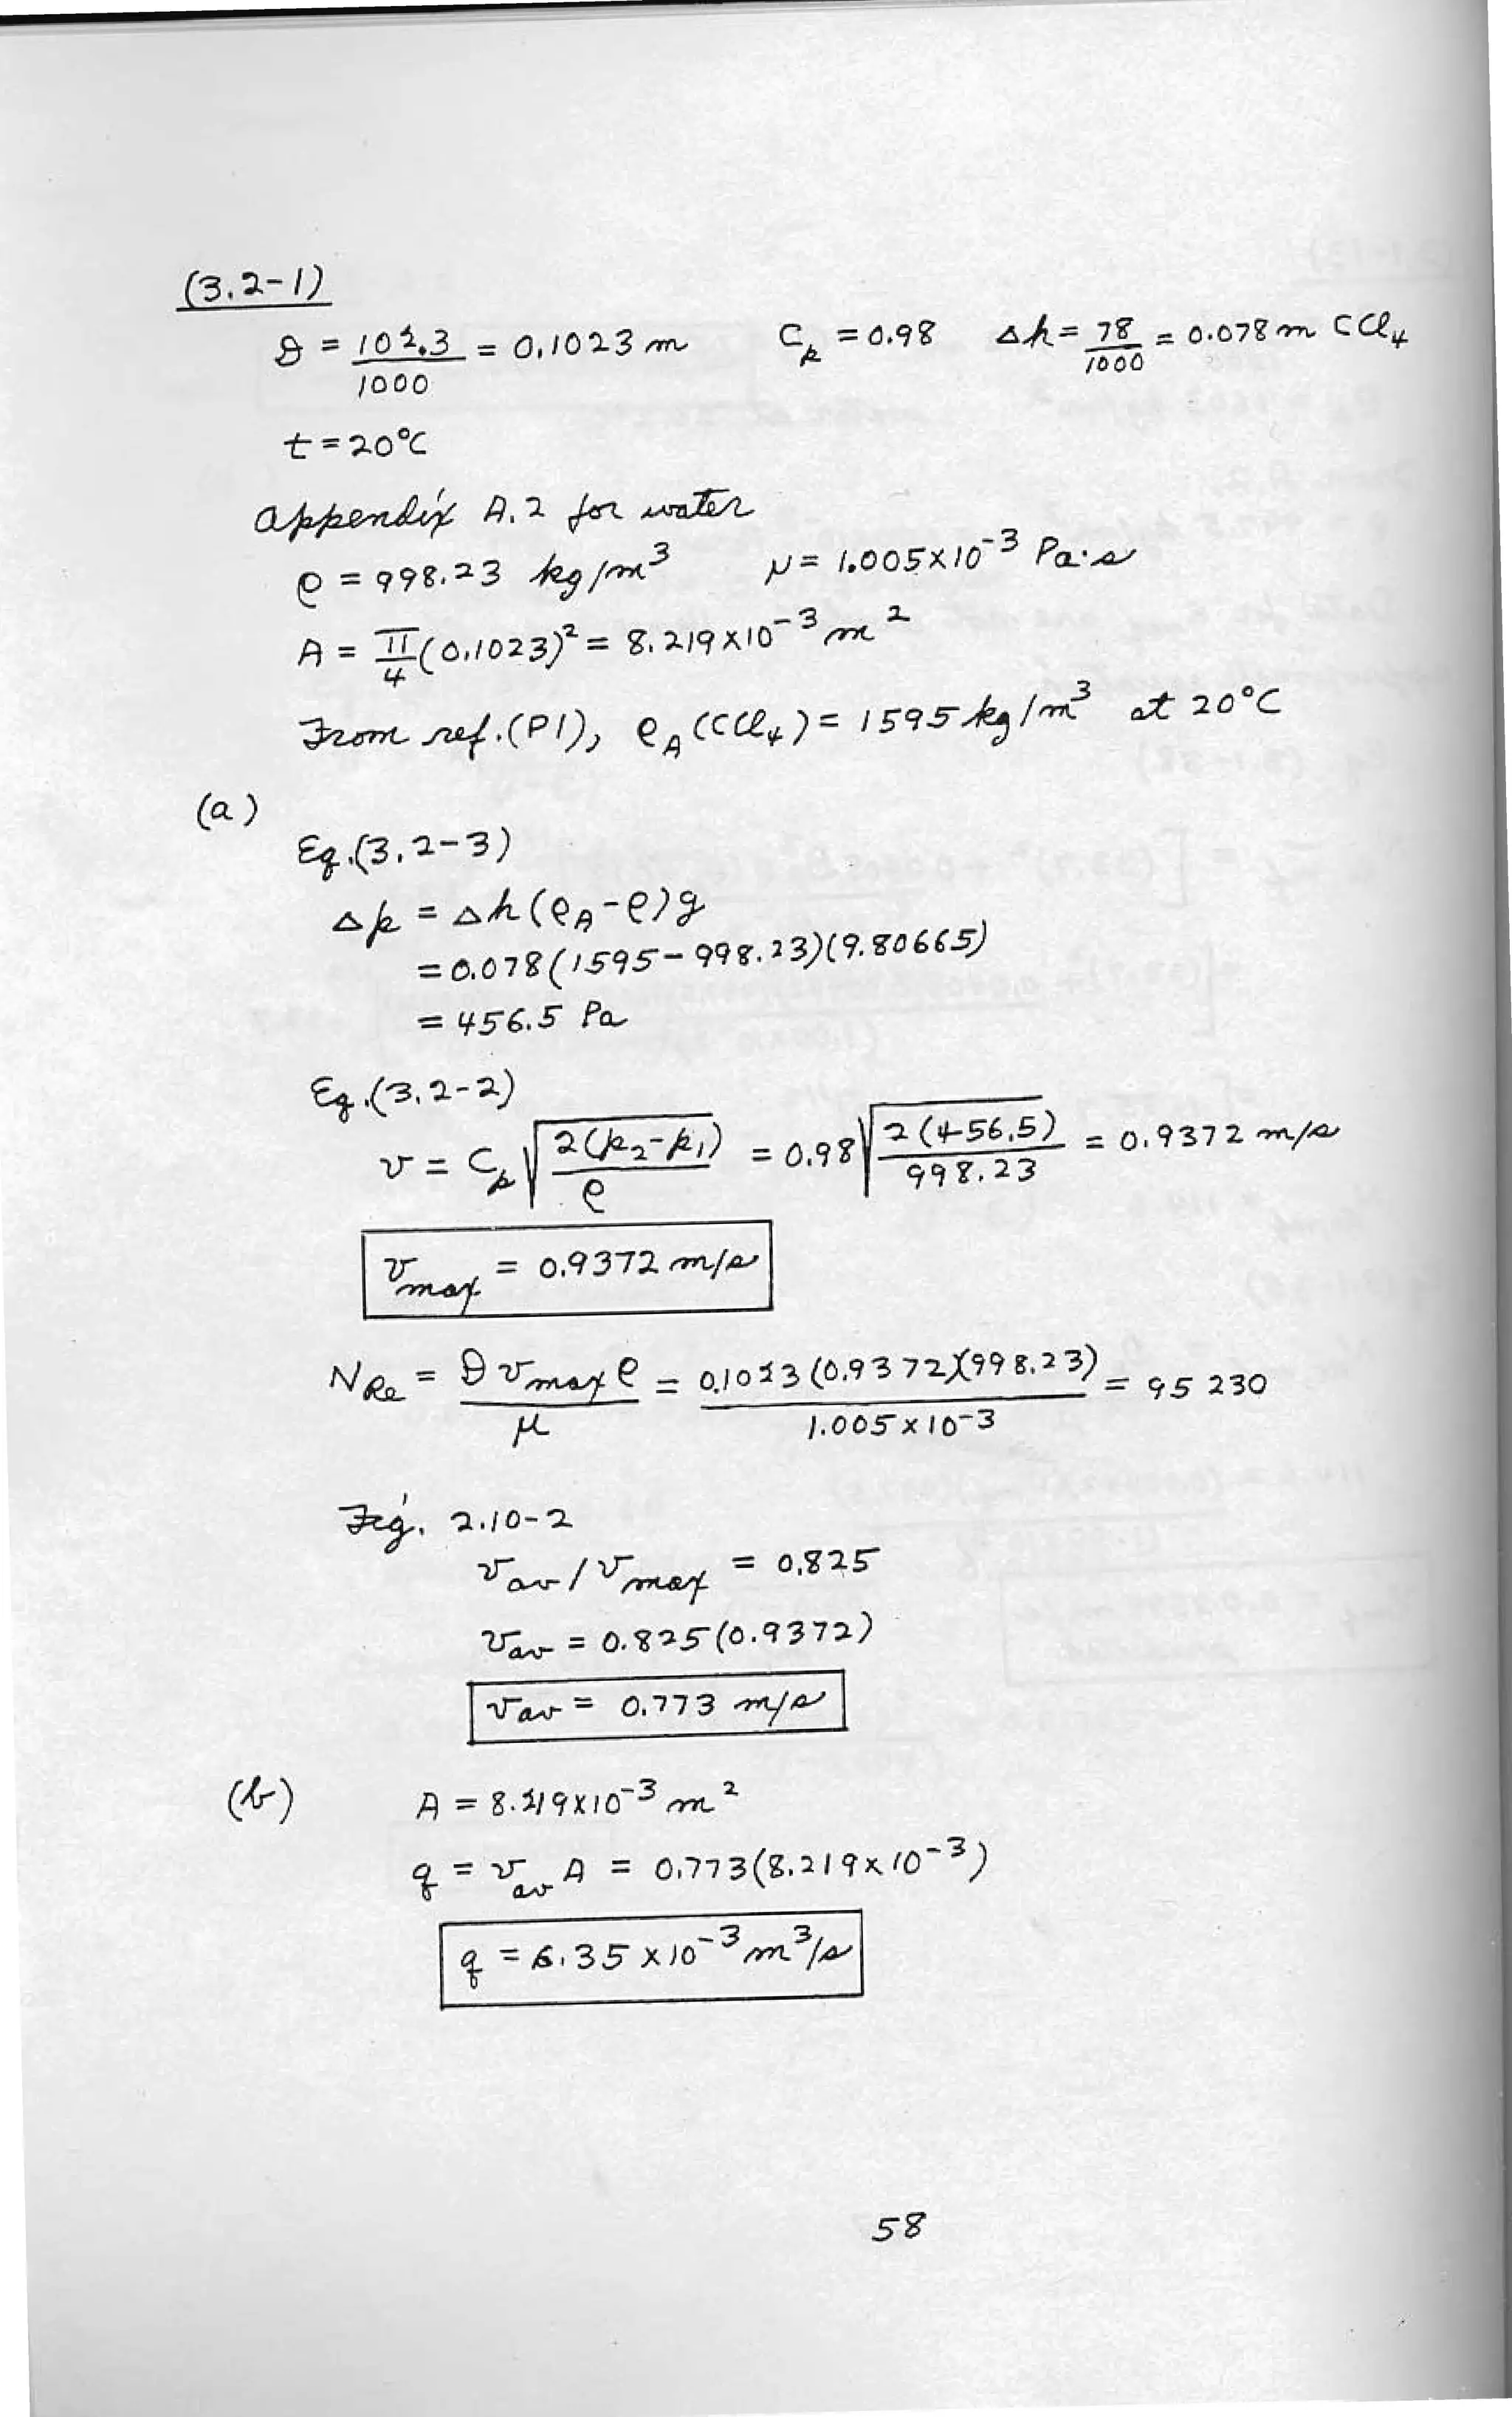 (3.2-1)
D = 102.3/1000 = 0.1023 m   Cp = 0.98   Δh = 78/1000 = 0.078 m CCl4
t = 20°C
Appendix A.2 for water
ρ = 998.23 kg/m³   μ = 1.005×10⁻³ Pa·s
A = π/4 (0.1023)² = 8.219×10⁻³ m²
From ref. (P1), ρA (CCl4) = 1595 kg/m³ at 20°C
(a)
Eq.(3.2-3)
Δp = Δh(ρA - ρ)g
= 0.078(1595 - 998.23)(9.80665)
= 456.5 Pa
Eq.(3.2-2)
v = Cp √(2(p2 - p1)/ρ) = 0.98 √(2(456.5)/998.23) = 0.9372 m/s
vmax = 0.9372 m/s
NRe = D vmax ρ/μ = 0.1023(0.9372)(998.23)/1.005×10⁻³ = 95 230
Fig. 2.10-2
vav/vmax = 0.825
vav = 0.825(0.9372)
vav = 0.773 m/s
(b) A = 8.219×10⁻³ m²
q = vav A = 0.773(8.219×10⁻³)
q = 6.35×10⁻³ m³/s
58